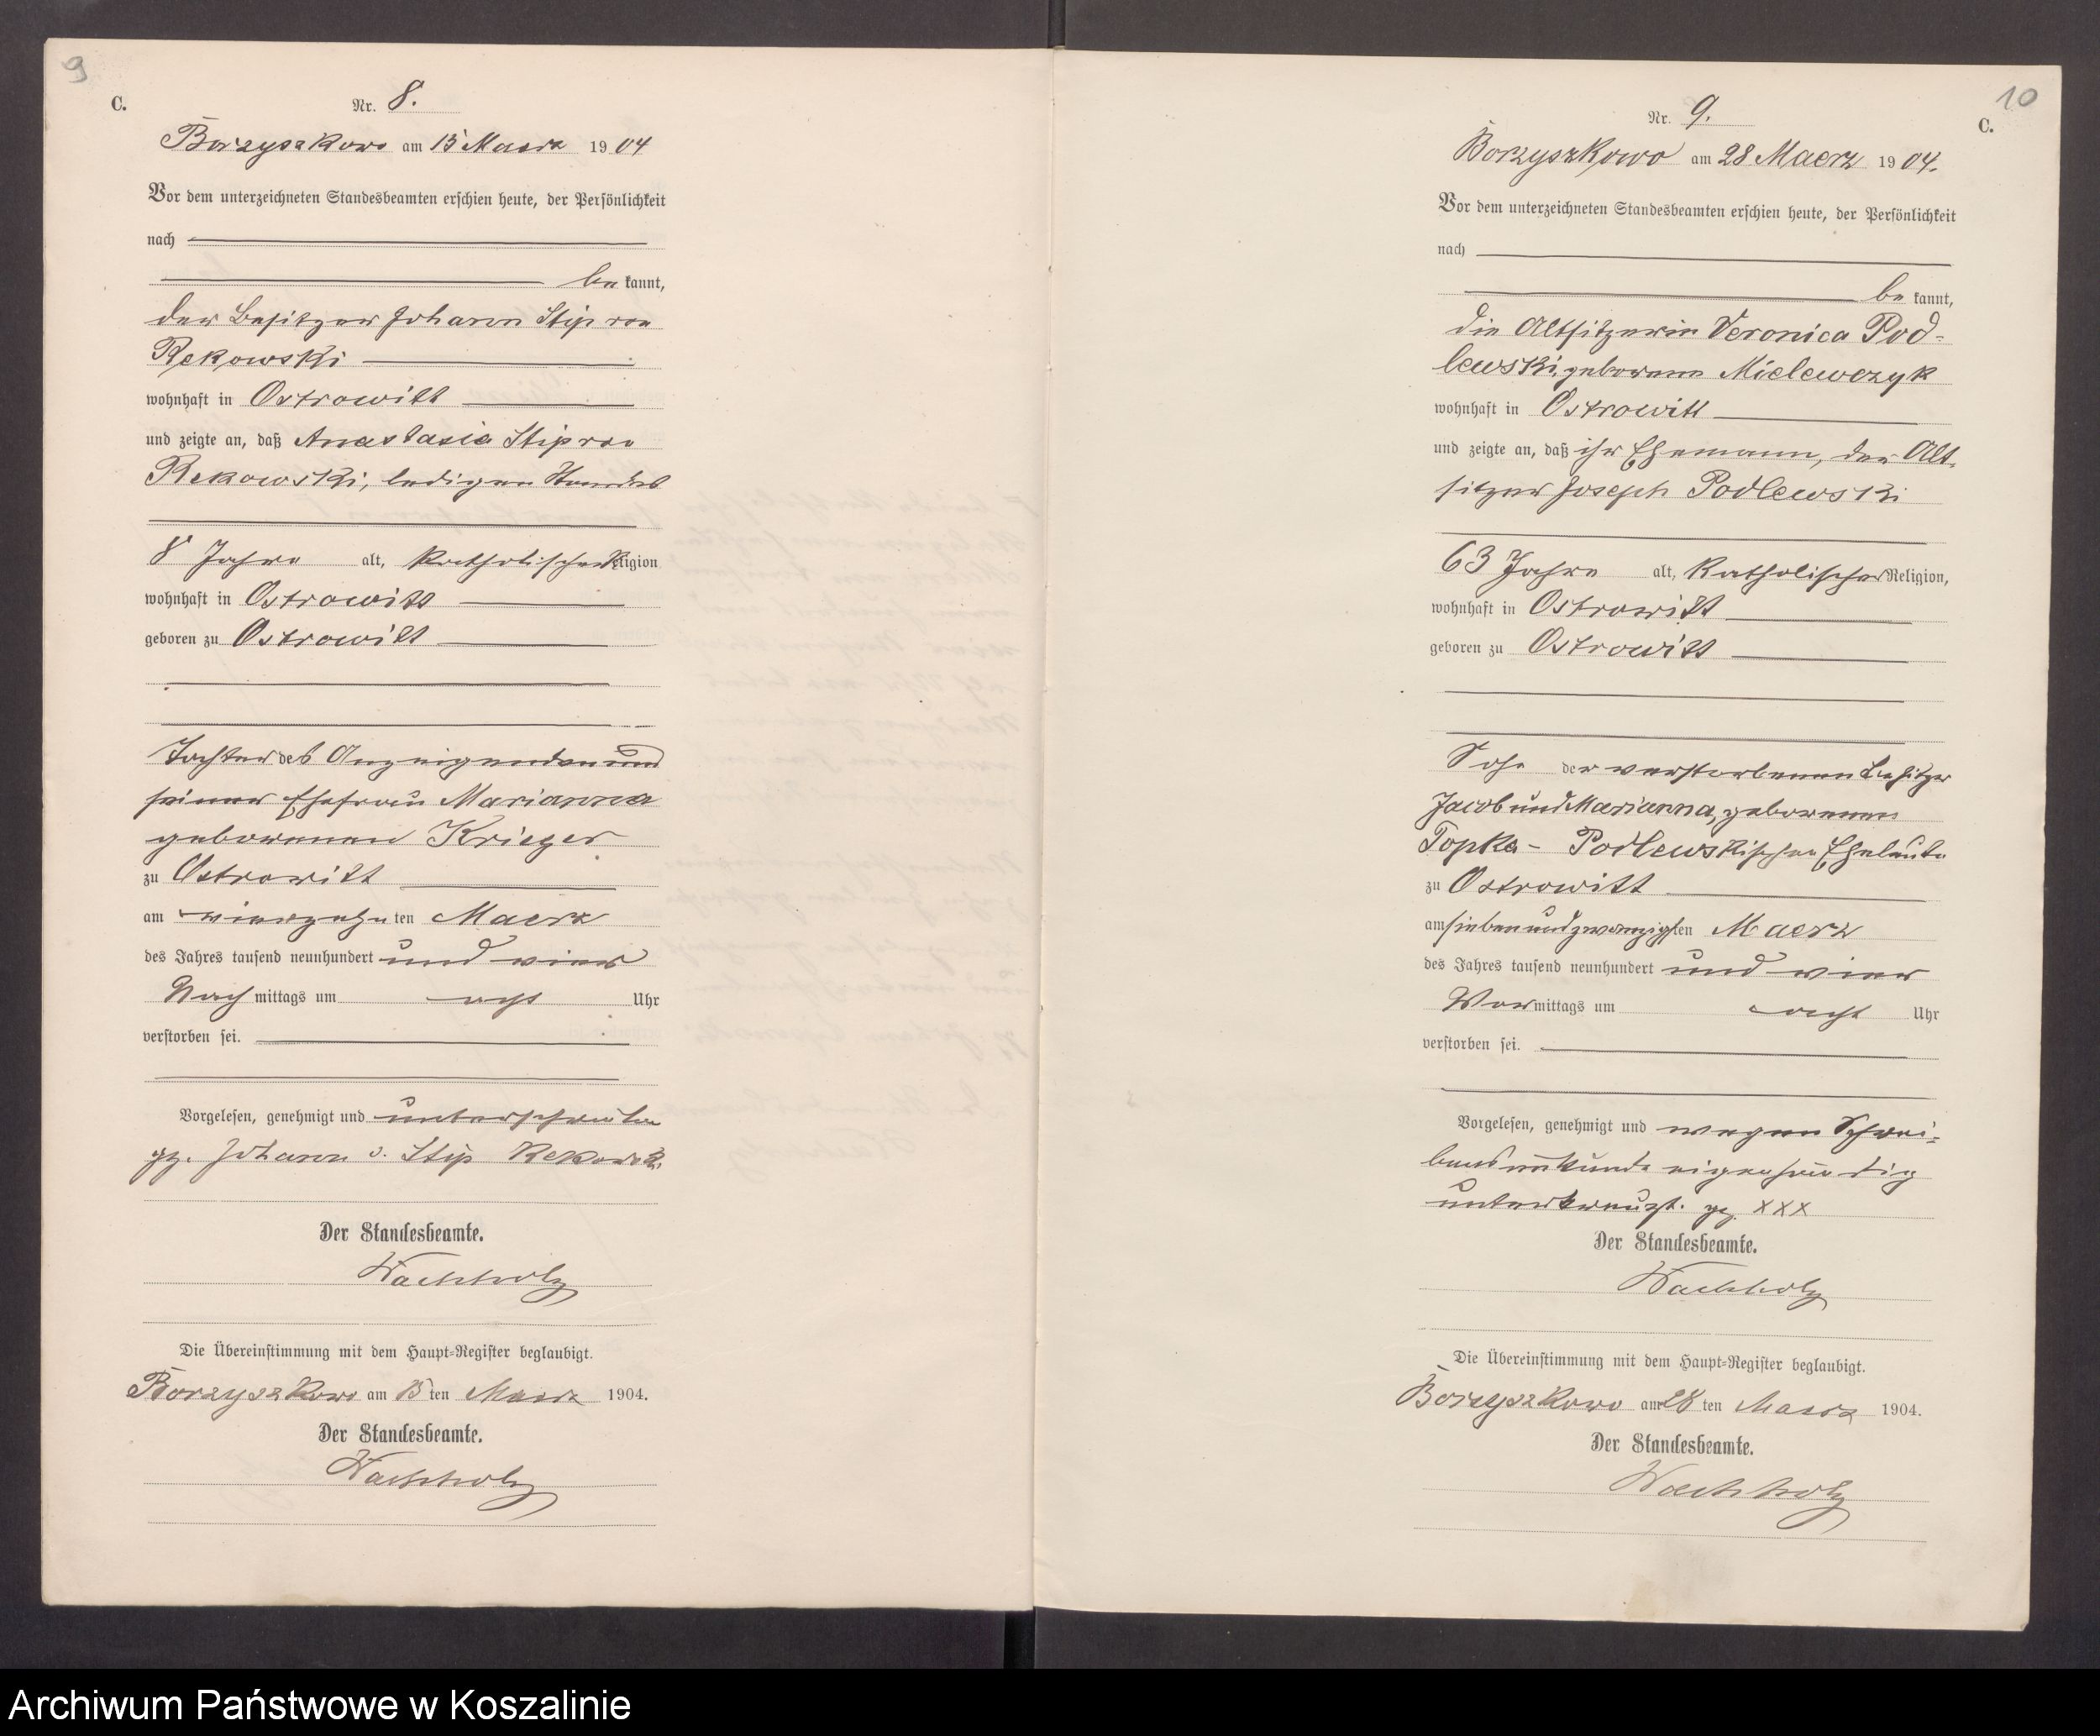 9
C.
Nr. 8.
Borzyszkowo am 15 Maerz 1904
Vor dem unterzeichneten Standesbeamten erschien heute, der Persönlichkeit
nach
be kannt,
der Besitzer Johann Stip von
Rekowski
wohnhaft in Ostrowitt
und zeigte an, daß Anastasia Stip von
Rekowski, ledigen Standes
8 Jahre alt, katholischer Religion
wohnhaft in Ostrowitt
geboren zu Ostrowitt
Tochter des Anzeigenden und
seiner Ehefrau Marianna
geborenen Krieger
zu Ostrowitt
am vierzehnten Maerz
des Jahres tausend neunhundert und vier
Nachmittags um acht Uhr
verstorben sei.
Vorgelesen, genehmigt und unterschrieben
gz. Johann v. Stip Rekowski
Der Standesbeamte.
Wachholz
Die Übereinstimmung mit dem Haupt-Register beglaubigt.
Borzyszkowo am 15ten Maerz 1904.
Der Standesbeamte.
Wachholz
10
C.
Nr. 9.
Borzyszkowo am 28 Maerz 1904.
Vor dem unterzeichneten Standesbeamten erschien heute, der Persönlichkeit
nach
be kannt,
die Altsitzerin Veronica Pod-
lewski, geborene Mielewczyk
wohnhaft in Ostrowitt
und zeigte an, daß ihr Ehemann, der Alt-
sitzer Joseph Podlewski
63 Jahre alt, katholischer Religion,
wohnhaft in Ostrowitt
geboren zu Ostrowitt
Sohn der verstorbenen Besitzer
Jacob und Marianna, geborenen
Topka- Podlewskischen Eheleute
zu Ostrowitt
am siebenundzwanzigsten Maerz
des Jahres tausend neunhundert und vier
Vormittags um acht Uhr
verstorben sei.
Vorgelesen, genehmigt und wegen Schrei-
bensunkunde eigenhändig
unterkreuzt. gz. XXX
Der Standesbeamte.
Wachholz
Die Übereinstimmung mit dem Haupt-Register beglaubigt.
Borzyszkowo am 28ten Maerz 1904.
Der Standesbeamte.
Wachholz
Archiwum Państwowe w Koszalinie